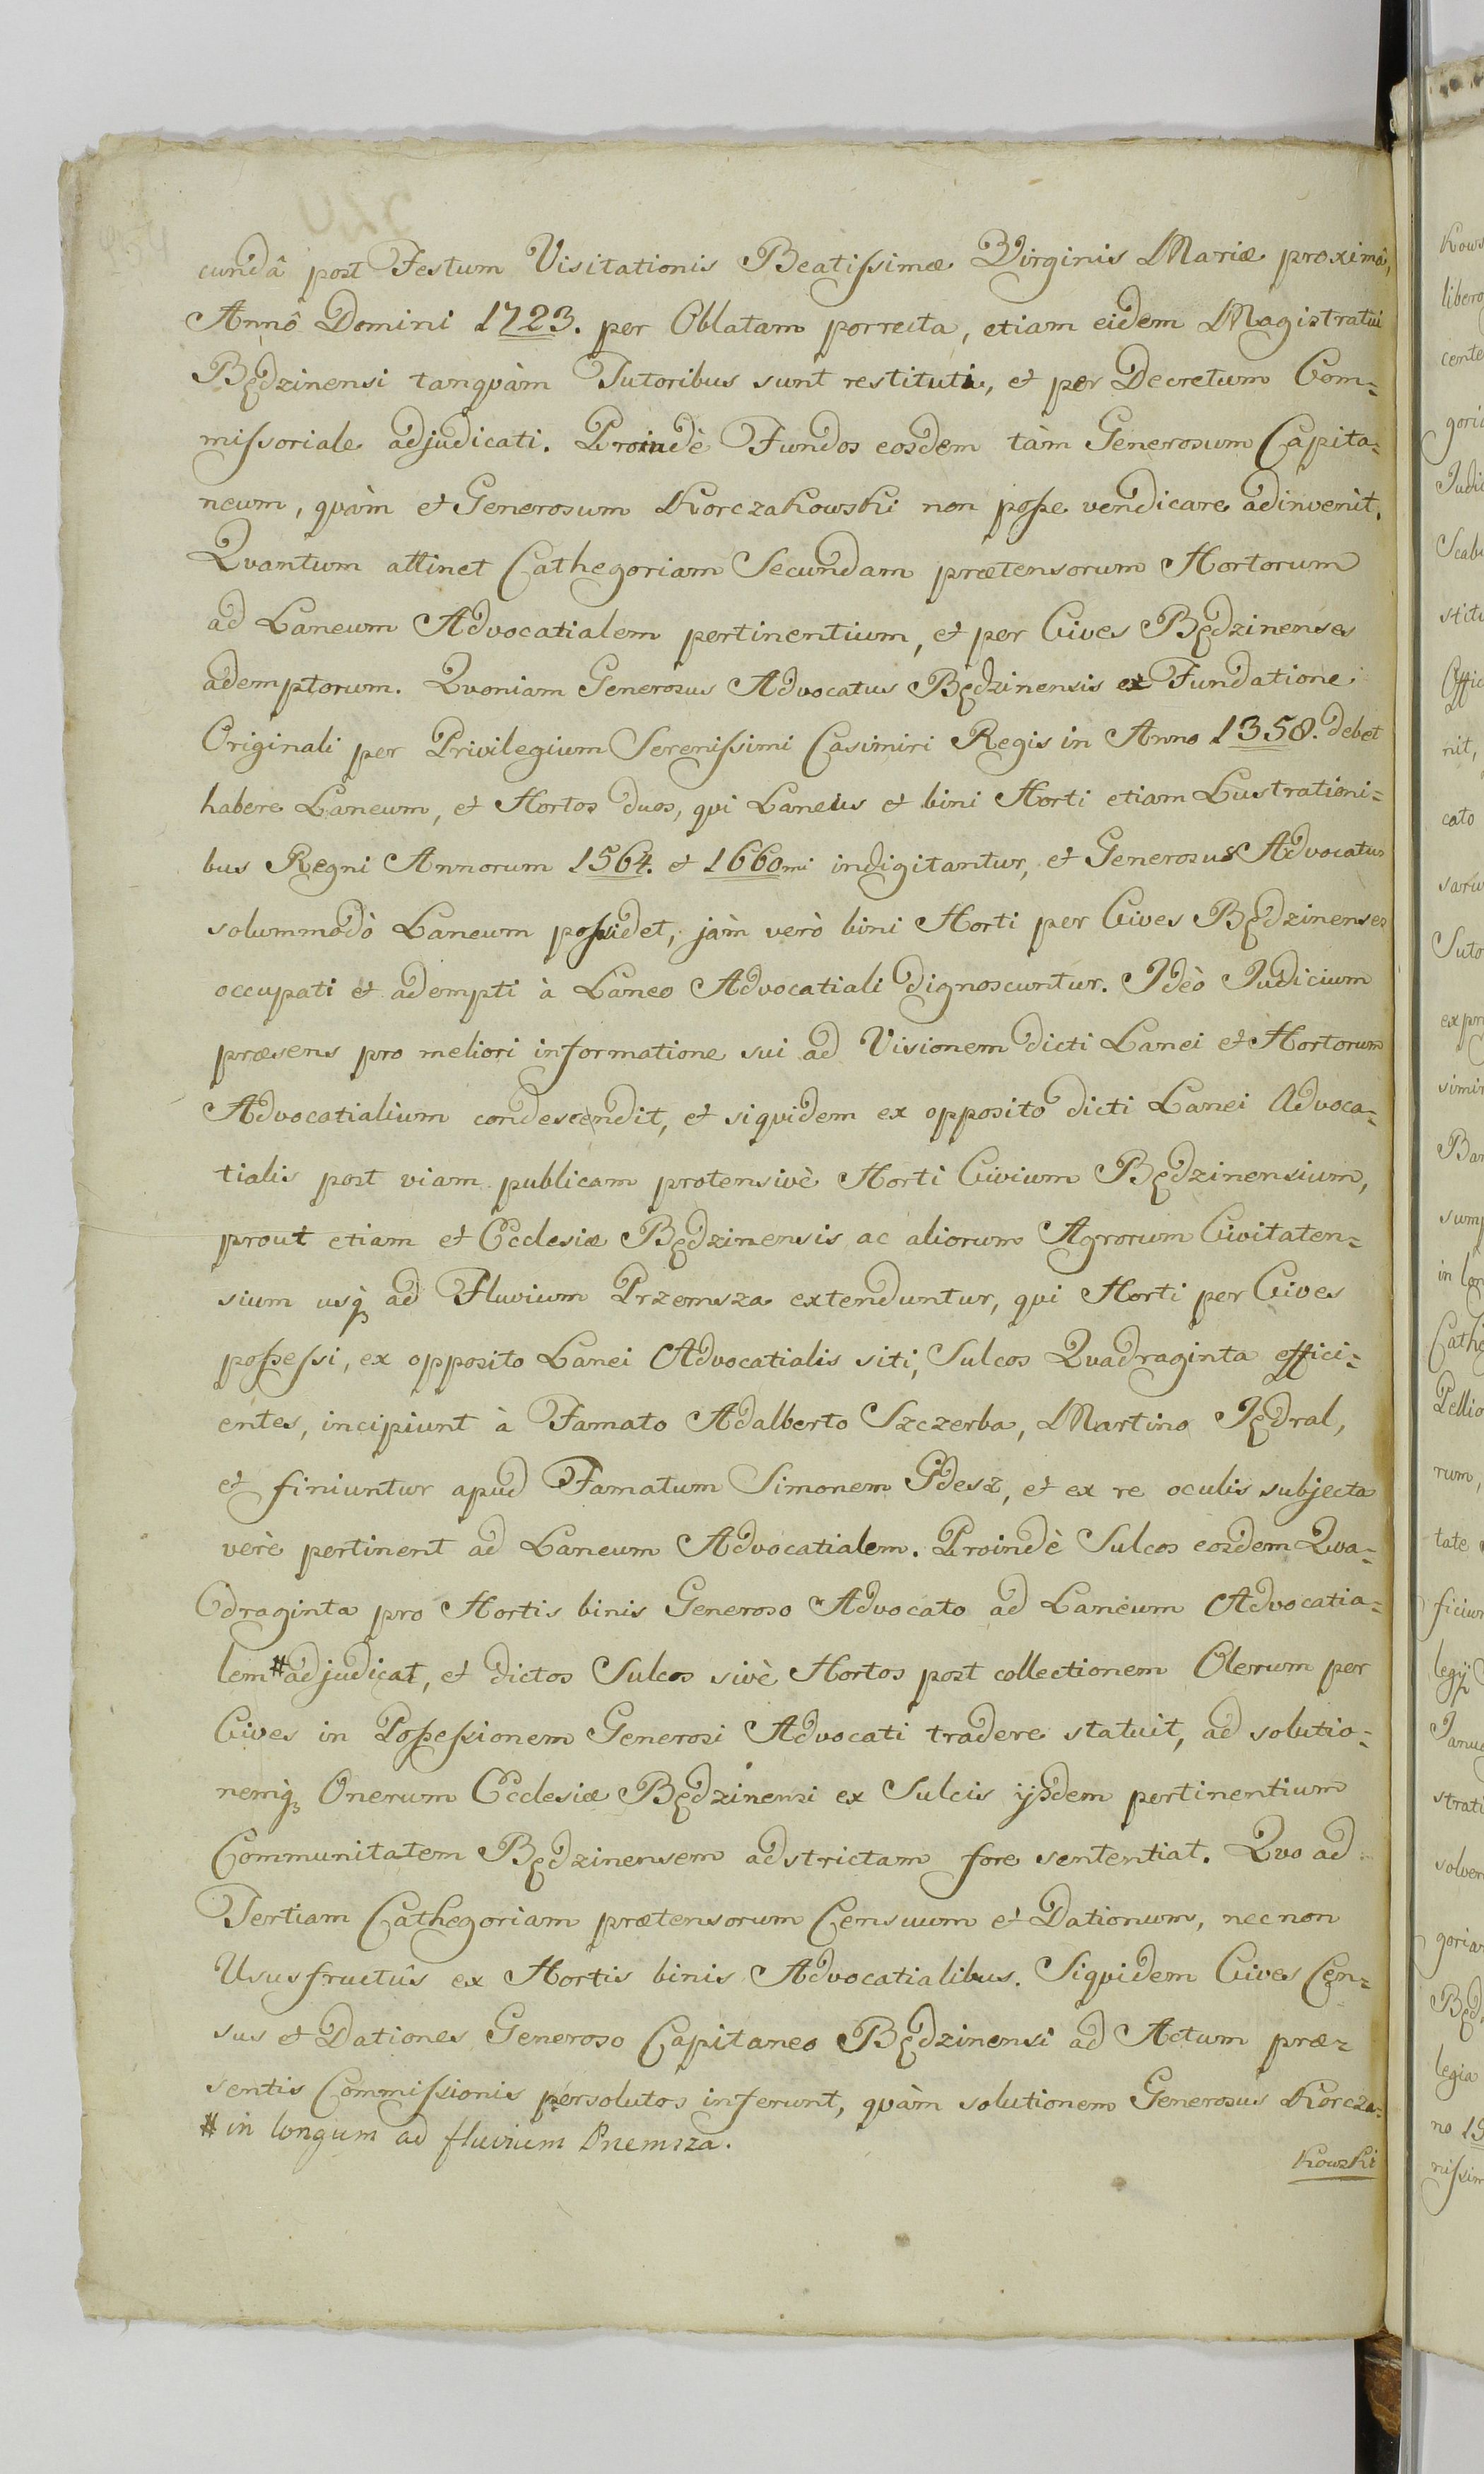 cundâ post Festum Visitationis Beatißimæ Virginis Mariæ proximâ,
Annô Domini 1723. per Oblatam porrecta, etiam eidem Magistratui
Będzinensi tanqvàm Tutoribus sunt restituti, et per Decretum Com=
mißoriale adjudicati. Proindè Fundos eosdem tàm Generosum Capita=
neum, qvàm et Generosum Korczakowski non poße vendicare adinvenit.
Qvantum attinet Cathegoriam Secundam prætensorum Hortorum
ad Laneum Advocatialem pertinentium, et per Cives Będzinenses
ademptorum. Qvoniam Generosus Advocatus Będzinensis ex Fundatione
Originali per Privilegium Serenißimi Casimiri Regis in Anno 1358. debet
habere Laneum, et Hortos duos, qvi Laneus et bini Horti etiam Lustrationi=
bus Regni Annorum 1564. et 1660mi indigitantur, et Generosus Advocatus
solummodò Laneum poßidet, jàm verò bini Horti per Cives Będzinenses
occupati et adempti à Laneo Advocatiali dignoscuntur. Ideò Judicium
præsens pro meliori informatione sui ad Visionem dicti Lanei et Hortorum
Advocatialium condescendit, et siqvidem ex opposito dicti Lanei Advoca=
tialis post viam publicam protensivè Horti Civium Będzinensium,
prout etiam et Ecclesiæ Będzinensis ac aliorum Agrorum Civitaten=
sium usq̨ ad Fluvium Przemsza extenduntur, qvi Horti per Cives
poßeßi, ex opposito Lanei Advocatialis siti, Sulcos Qvadraginta effici=
entes, incipiunt à Famato Adalberto Szczerba, Martino Jędral,
et finiuntur apud Famatum Simonem Gdesz, et ex re oculis subjecta
verè pertinent ad Laneum Advocatialem. Proindè Sulcos eosdem Qva=
draginta pro Hortis binis Generoso Advocato ad Laneum Advocatia=
lem # adjudicat, et dictos Sulcos sivè Hortos post collectionem Olerum per
Cives in Poßeßionem Generosi Advocati tradere statuit, ad solutio=
nemq̨ Onerum Ecclesiæ Będzinensi ex Sulcis ijsdem pertinentium
Communitatem Będzinensem adstrictam fore sententiat. Qvo ad
Tertiam Cathegoriam prætensorum Censuum et Dationum, nec non
Ususfructûs ex Hortis binis Advocatialibus. Siqvidem Cives Cen=
sus et Dationes Generoso Capitaneo Będzinensi ad Actum præ=
sentis Commißionis persolutos inferunt, qvàm solutionem Generosus Korcza=
# in longum ad fluvium Premsza.
kowski